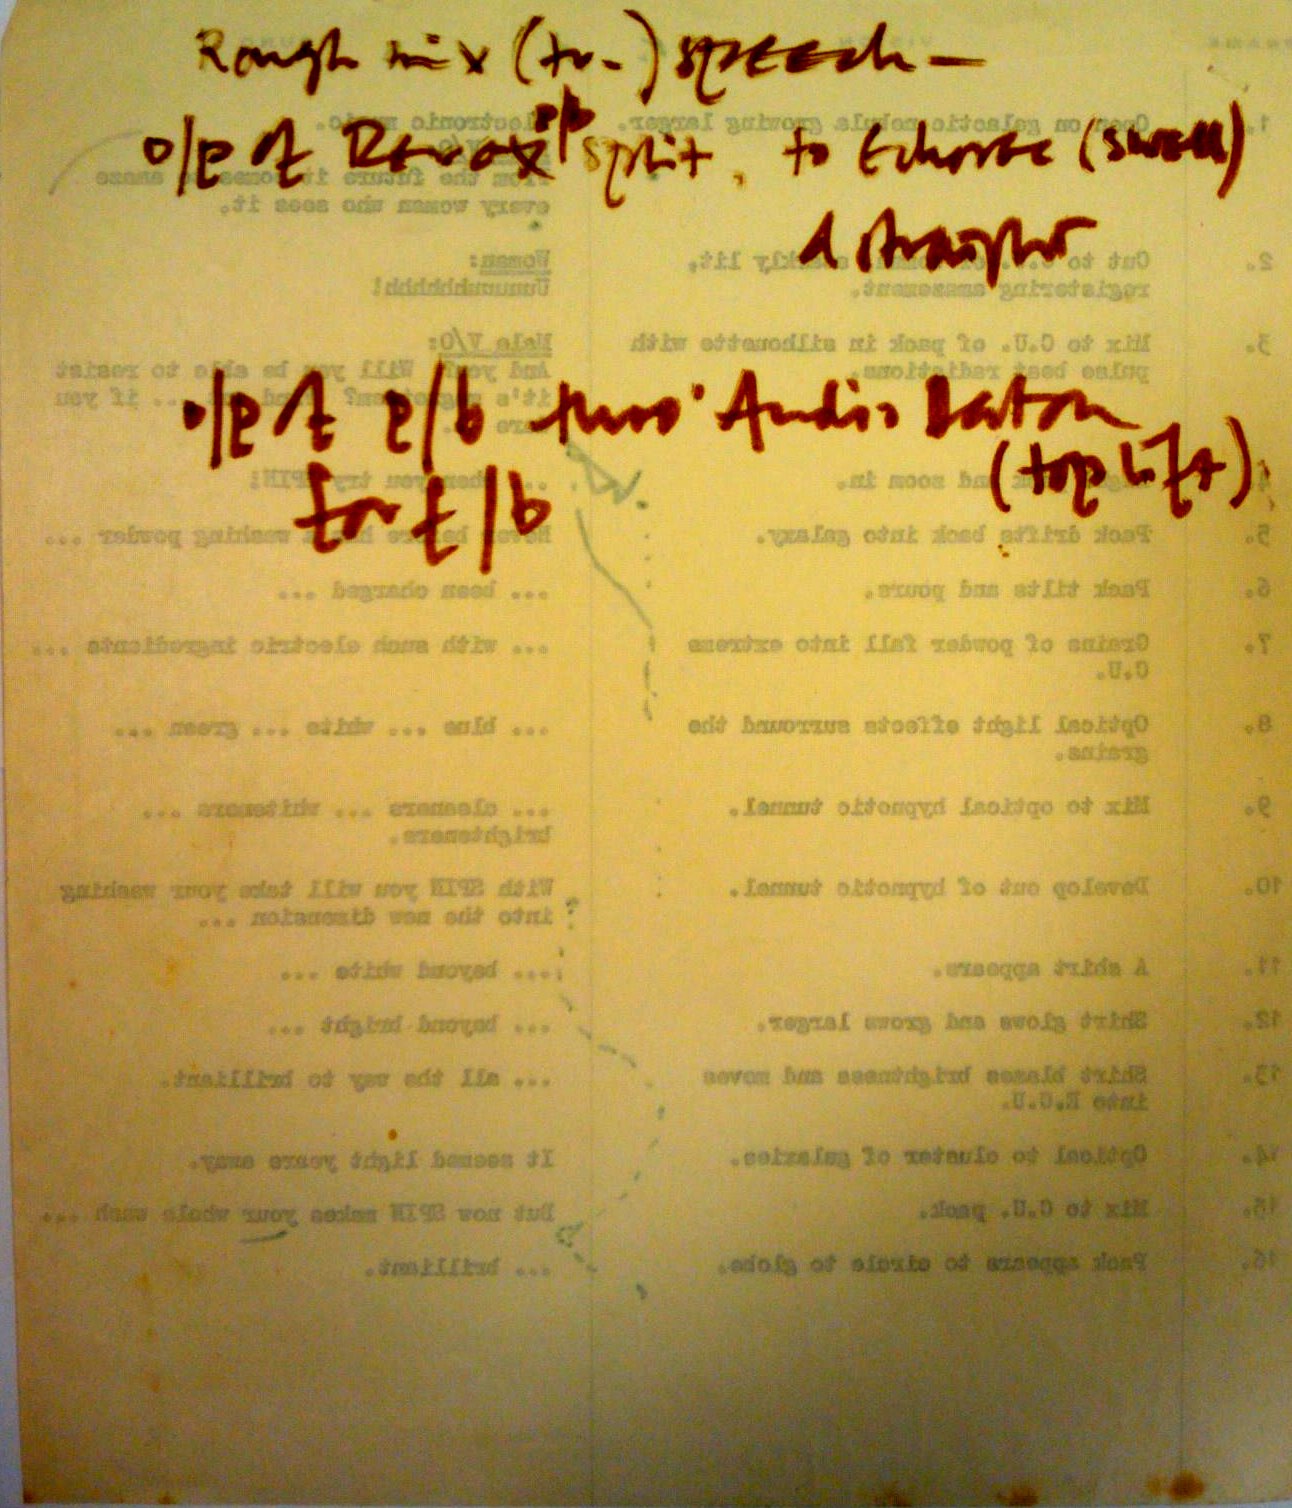 Rough mix (tr-) speech -
o/p of Revox p/b split, to Echorec (swell)
& straight
o/p of p/b thro' Audio Baton
(top lift)
for f/b
1. Open on galactic nebula growing larger.
Electronic music.
From the future it comes to amaze
every woman who sees it.
2. Cut to lit,
registering amazement.
Woman:
Uuuuuhhhhhh!
3. Mix to C.U. of pack in silhouette with
pulse beat radiations.
Male V/O:
And you? Will you be able to resist
it's magnetism? ... if you
and zoom in.
when you try SPIN!
5. Pack drifts back into galaxy.
Never before has a washing powder ...
6. Pack tilts and pours.
... been charged ...
7. Grains of powder fall into extreme
C.U.
... with such electric ingredients ...
8. Optical light effects surround the
grains.
... blue ... white ... green ...
9. Mix to optical hypnotic tunnel.
... cleaners ... whiteners ...
brighteners.
10. Develop out of hypnotic tunnel.
With SPIN you will take your washing
into the new dimension ...
11. A shirt appears.
... beyond white ...
12. Shirt glows and grows larger.
... beyond bright ...
13. Shirt blazes brightness and moves
into E.C.U.
... all the way to brilliant.
14. Optical to cluster of galaxies.
It seemed light years away.
15. Mix to C.U. pack.
But now SPIN makes your whole wash ...
16. Pack appears to circle to globe.
... brilliant.